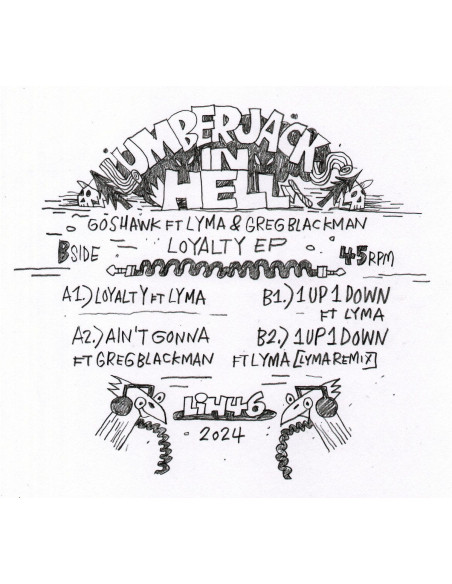 LUMBERJACKS
IN
HELL
GOSHAWK FT LYMA & GREG BLACKMAN
LOYALTY EP
B SIDE
45 RPM
A1.) LOYALTY FT LYMA
A2.) AIN'T GONNA
FT GREG BLACKMAN
B1.) 1 UP 1 DOWN
FT LYMA
B2.) 1 UP 1 DOWN
FT LYMA [LYMA REMIX]
LIH46
2024